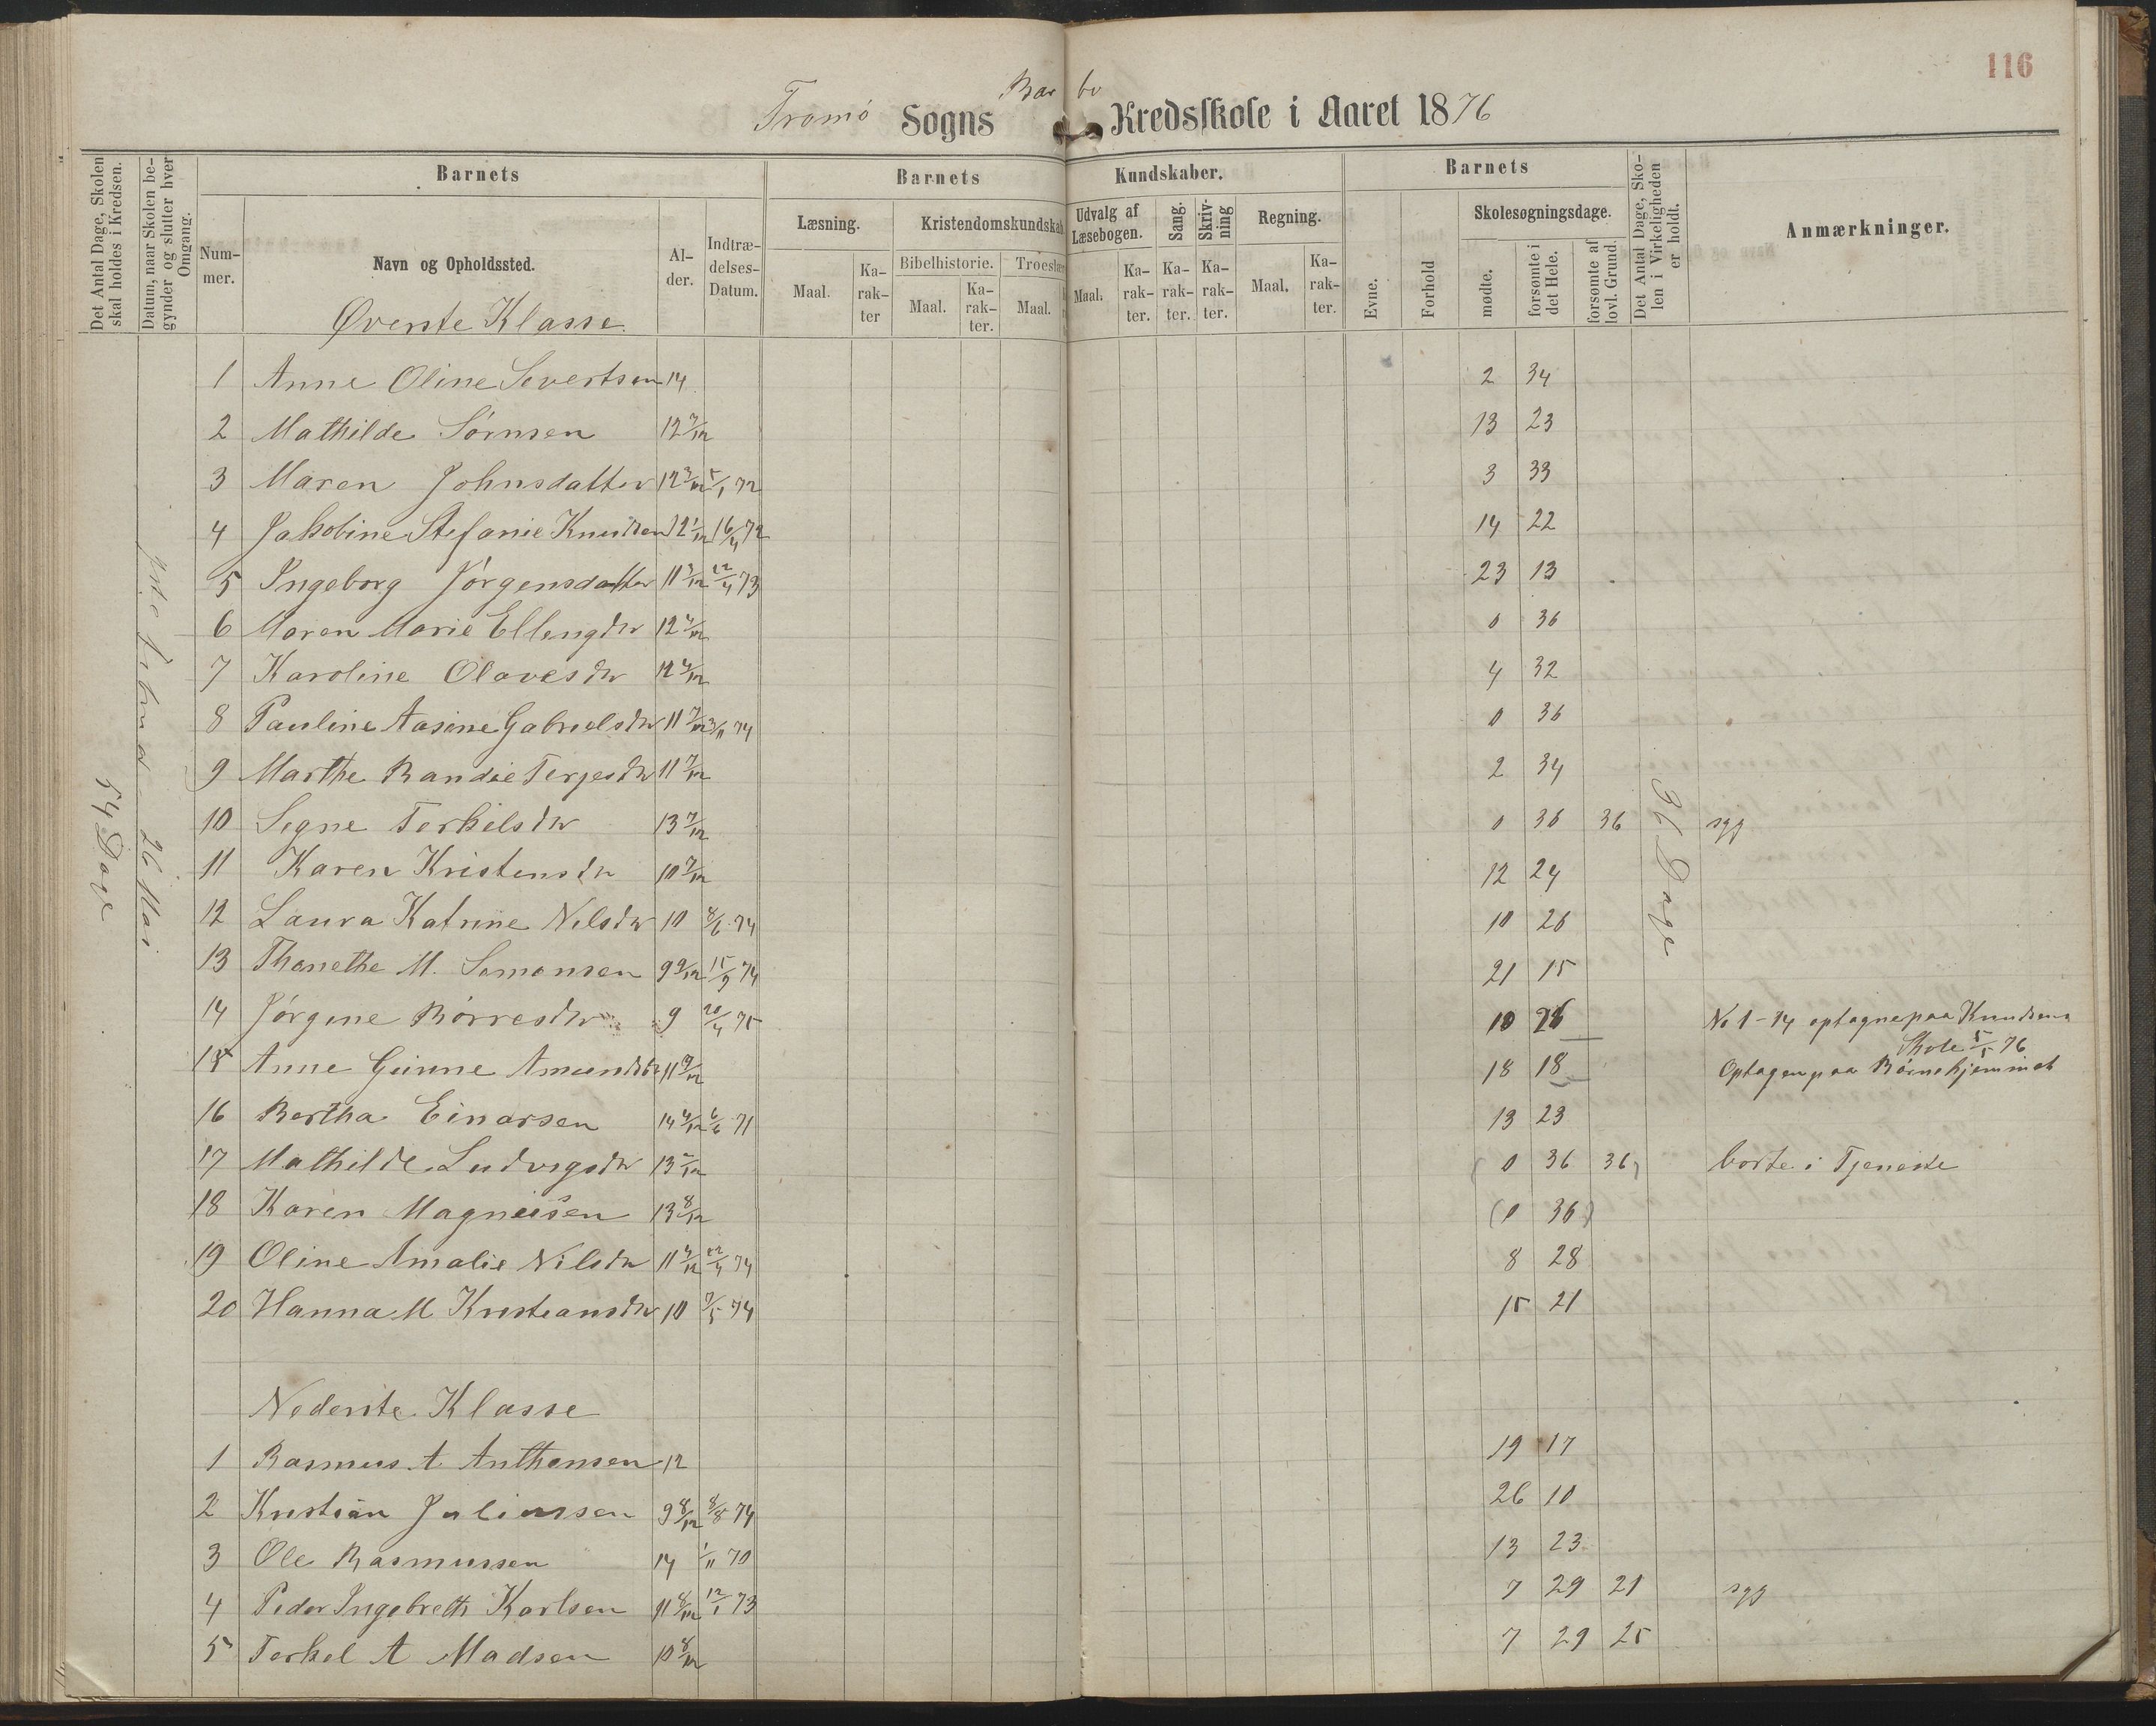 116
Tromø Sogns Barbo Kredsskole i Aaret 1876
Det Antal Dage, Skolen skal holdes i Kredsen.
Datum, naar Skolen begynder og slutter hver Omgang.
Barnets
Barnets Kundskaber.
Barnets
Nummer.
Navn og Opholdssted.
Alder.
Indtrædelses-Datum.
Læsning.
Kristendomskundskab
Udvalg af Læsebogen.
Sang.
Skrivning
Regning.
Skolesøgningsdage.
Det Antal Dage, Skolen i Virkeligheden er holdt.
Anmærkninger.
Maal.
Karakter
Bibelhistorie.
Troeslære
Maal.
Karakter.
Maal.
Maal.
Karakter.
Karakter.
Karakter.
Maal.
Karakter.
Evne.
Forhold
mødte.
forsømte i det Hele.
forsømte af lovl. Grund.
Øverste Klasse
54 Dage
26 Mai
36 Dage
1 Anne Oline Severtsen 14 2 34
2 Mathilde Sørnsen 12 7/12 13 23
3 Maren Johnsdatter 12 3/12 5/1 72 3 33
4 Jakobine Stefanie Knudsen 12 1/12 16/4 72 14 22
5 Ingeborg Jørgensdatter 11 3/12 22/4 73 23 13
6 Maren Marie Ellengdtr 12 4/12 0 36
7 Karoline Olavesdtr 12 4/12 4 32
8 Pauline Aasine Gabrielsdtr 11 7/12 3/11 74 0 36
9 Marthe Randie Terjesdtr 11 7/12 2 34
10 Segne Terkelsdtr 13 7/12 0 36 36 syg
11 Karen Kristensdtr 10 7/12 12 24
12 Laura Katrine Nelsdtr 10 8/6 74 10 26
13 Thonethe M. Samonsen 9 9/12 15/9 74 21 15
14 Jørgine Børresdtr 9 20/4 75 10 26 No 1-14 optagne paa Knudsens Skole 5/5 76
15 Anne Gunne Amundsdtr 11 9/12 18 18 Optagen paa Børnehjemmet
16 Bertha Einarsen 14 4/12 6/6 71 13 23
17 Mathilde Ludvigsdtr 13 2/12 (0 36 36) borte i Tjeneste
18 Karen Magneisen 13 8/12 (0 36)
19 Oline Amalie Nilsdtr 11 4/12 22/4 74 8 28
20 Hanna M Kristiansdtr 10 7/5 74 15 21
Nederste Klasse
1 Rasmus A Anthonsen 12 19 17
2 Kristian Juliussen 9 8/12 8/8 74 26 10
3 Ole Rasmussen 14 1/11 70 13 23
4 Peder Ingebreth Karlsen 11 8/12 12/1 73 7 29 21 syg
5 Terkel A Madsen 10 8/12 7 29 25